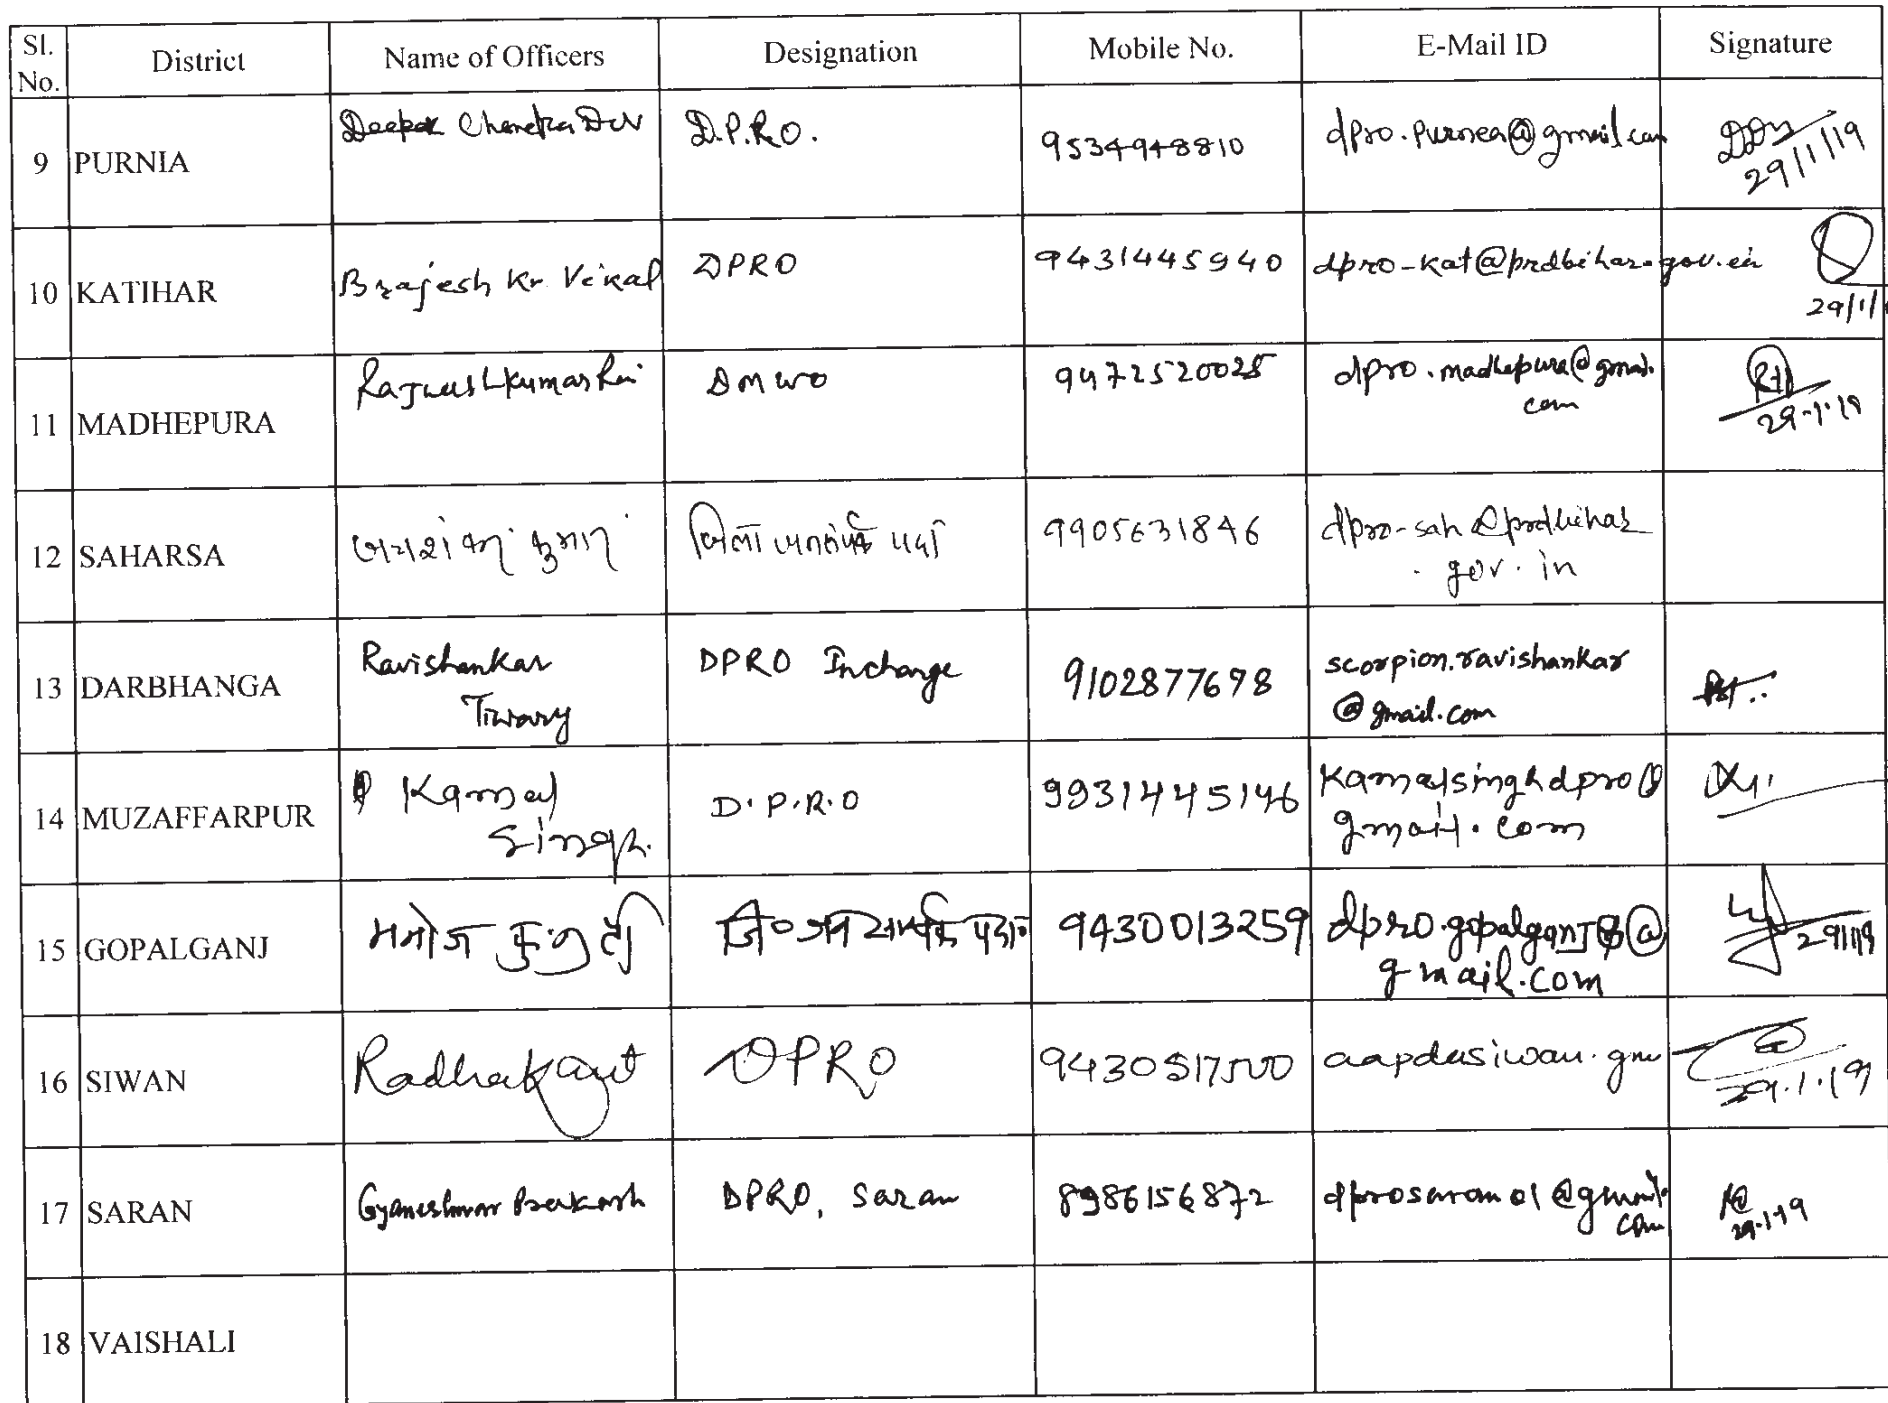 Sl. No. District Name of Officers Designation Mobile No. E-Mail ID Signature
9 PURNIA Deepak Chandra Dev D.P.R.O. 9534948810 dpro.purnea@gmail.com
29/1/19
10 KATIHAR Brajesh Kr. Vikal DPRO 9431445940 dpro-kat@prdbihar.gov.in
29/1/
11 MADHEPURA DMWO 9472520025 dpro.madhepura@gmail.
com
29-1-19
12 SAHARSA कुमार जिला 9905631846 dpro-sah@prdbihar
.gov.in
13 DARBHANGA Ravishankar DPRO Incharge 9102877678 scorpion.ravishankar
Tiwary @gmail.com
14 MUZAFFARPUR Kamal D.P.R.O 9931445146 Kamalsinghdpro@
Singh. gmail.com
15 GOPALGANJ मनोज जि० 9430013259 dpro.gopalganj@
gmail.com
29/1/19
16 SIWAN Radhakant DPRO 9430517500 aapdasiwan.gm
29.1.19
17 SARAN Gyaneshwar Prakash DPRO, Saran 8986156872 dprosaran01@gmail.
com
29.1.19
18 VAISHALI